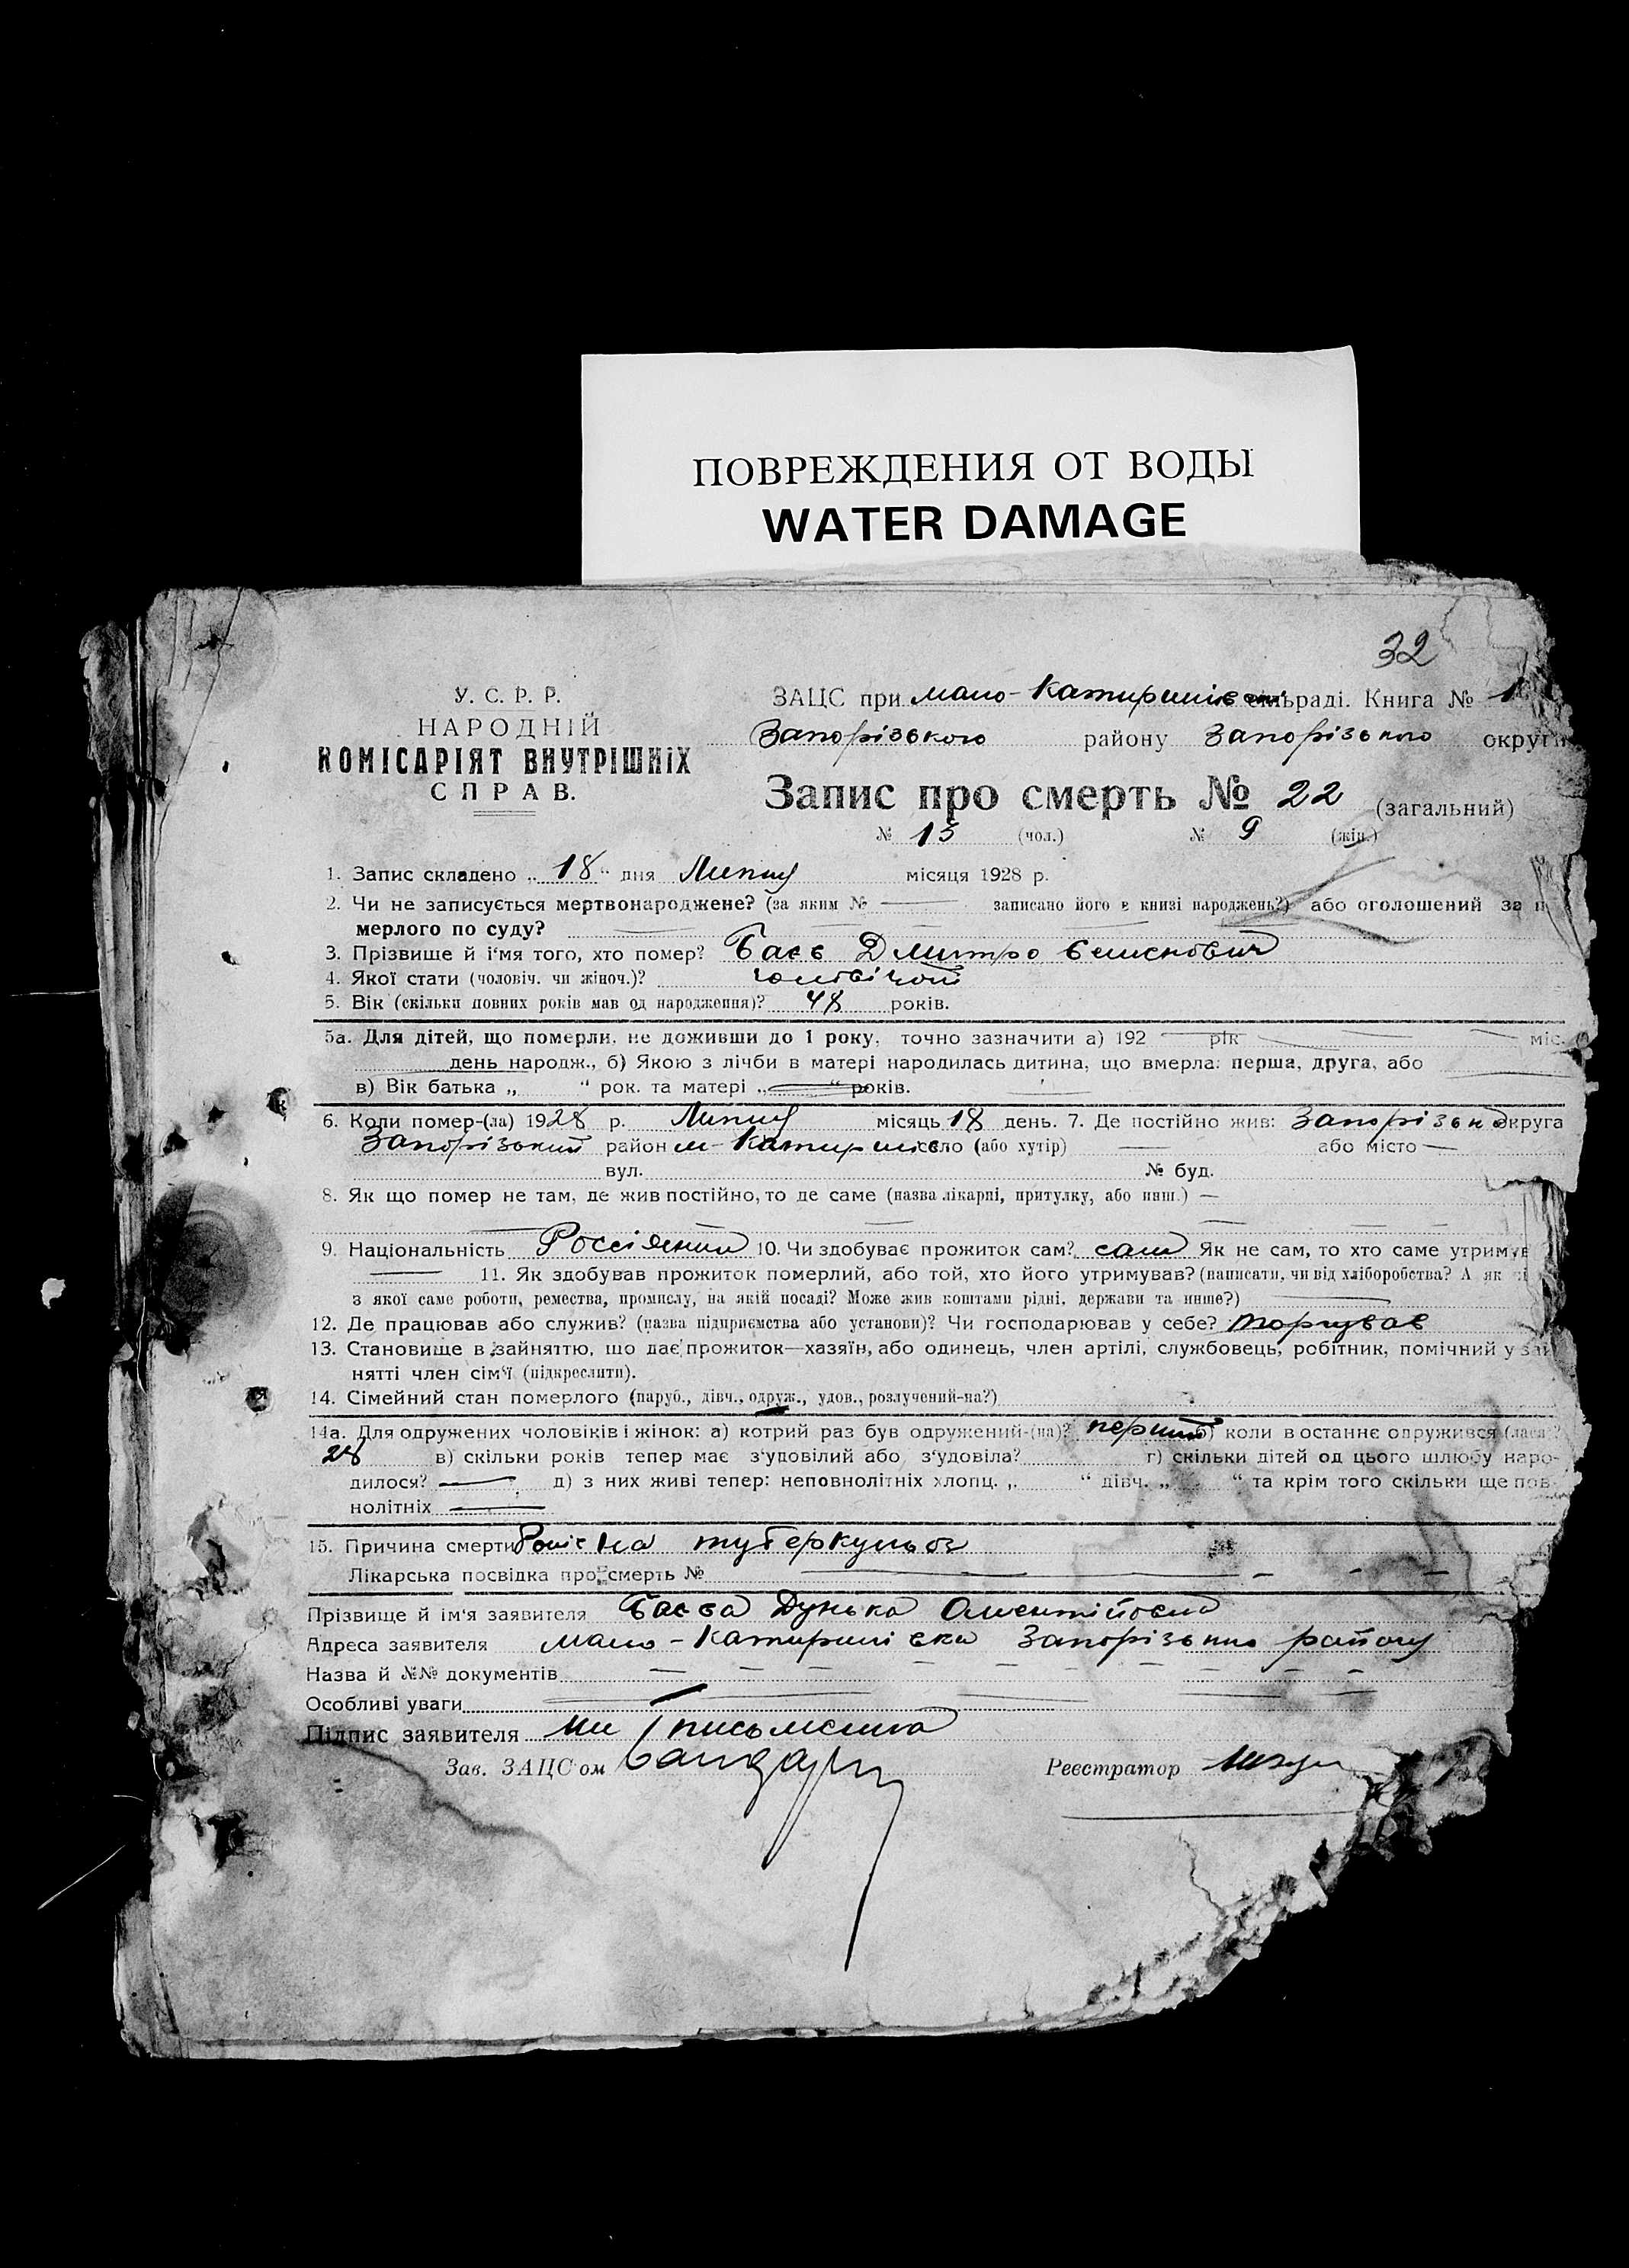 ПОВРЕЖДЕНИЯ ОТ ВОДЫ
WATER DAMAGE
32
У. С. Р. Р.
НАРОДНІЙ
КОМІСАРІЯТ ВНУТРІШНІХ
СПРАВ.
ЗАЦС при раді. Книга № 1
Запорізького району Запорізького округи
Запис про смерть № 22 (загальний)
№ 13 (чол.) № 9 (жін.)
1. Запис складено „ 18 “ дня Липня місяця 1928 р.
2. Чи не записується мертвонароджене? (за яким № записано його в книзі народжень?) або оголошений за
мерлого по суду?
3. Прізвище й і'мя того, хто помер? Баєв Дмитро
4. Якої стати (чоловіч. чи жіноч.)?
5. Вік (скільки повних років мав од народження)? 48 років.
5а. Для дітей, що померли, не доживши до 1 року, точно зазначити а) 192 рік міс.
день народж., б) Якою з лічби в матері народилась дитина, що вмерла: перша, друга, або
в) Вік батька „ “ рок. та матері „ “ років.
6. Коли помер-(ла) 1928 р. Липня місяць 18 день. 7. Де постійно жив: округа
Запорізький район село (або хутір) або місто
вул. № буд.
8. Як що помер не там, де жив постійно, то де саме (назва лікарні, притулку, або инш.)
9. Національність 10. Чи здобуває прожиток сам? сам Як не сам, то хто саме
11. Як здобував прожиток померлий, або той, хто його утримував? (написати, чи від хліборобства? А як
з якої саме роботи, ремества, промислу, на якій посаді? Може жив коштами рідні, держави та инше?)
12. Де працював або служив? (назва підприємства або установи)? Чи господарював у себе? торгував
13. Становище в зайняттю, що дає прожиток—хазяїн, або одинець, член артілі, службовець, робітник, помічний у
нятті член сім'ї (підкреслити).
14. Сімейний стан померлого (паруб., дівч., одруж., удов., розлучений-на?)
14а. Для одружених чоловіків і жінок: а) котрий раз був одружений-(на)? перший б) коли в останнє одружився (лася)?
28 в) скільки років тепер має з'удовілий або з'удовіла? г) скільки дітей од цього шлюбу наро-
дилося? д) з них живі тепер: неповнолітніх хлопц. „ “ дівч. „ “ та крім того скільки ще пов-
нолітніх
15. Причина смерти туберкульоз
Лікарська посвідка про смерть №
Прізвище й ім'я заявителя Баєва Дунька
Адреса заявителя району
Назва й №№ документів
Особливі уваги
Підпис заявителя письменна
Зав. ЗАЦС'ом Реєстратор